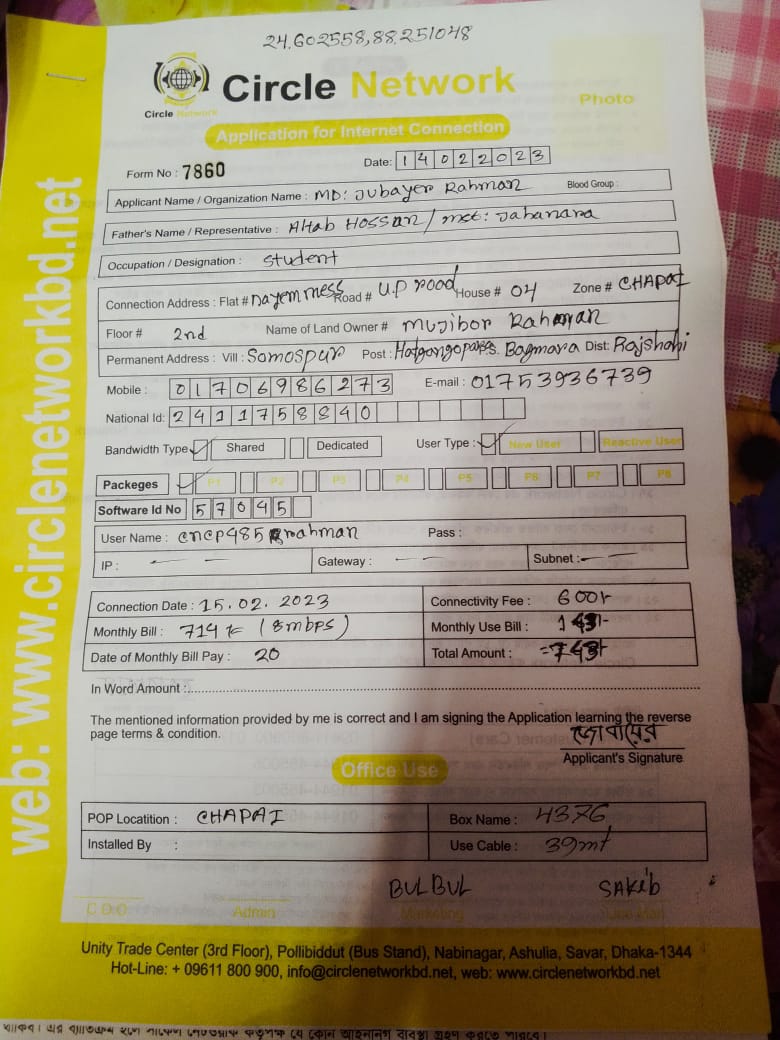 24.602558,88.251048
Circle Network
Circle Network
Photo
Application for Internet Connection
Form No : 7860
Date: 14022023
Applicant Name / Organization Name : MD: Jubayer Rahman Blood Group :
Father's Name / Representative : Altab Hossan / mst: Jahanara
Occupation / Designation : Student
Connection Address : Flat # nayem mess Road # U.P rood House # 04 Zone # CHAPAI
Floor # 2nd Name of Land Owner # Mujibor Rahman
Permanent Address : Vill : Somospur Post : P.S. Bagmara Dist: Rajshahi
Mobile : 01706986273 E-mail : 01753936739
National Id: 2411758840
Bandwidth Type Shared Dedicated User Type : New User Reactive User
Packeges P1 P2 P3 P4 P5 P6 P7 P8
Software Id No 57045
User Name : cncp485 rahman Pass :
IP : Gateway : Subnet :
Connection Date : 15.02.2023 Connectivity Fee : 600/-
Monthly Bill : 714 tk (8mbps) Monthly Use Bill :
Date of Monthly Bill Pay : 20 Total Amount :
In Word Amount :
The mentioned information provided by me is correct and I am signing the Application learning the reverse
page terms & condition.
জোবায়ের
Applicant's Signature
Office Use
POP Locatition : CHAPAI Box Name : 4376
Installed By : Use Cable : 39mt
BULBUL SAKib
C.D.O Admin Marketing
Unity Trade Center (3rd Floor), Pollibiddut (Bus Stand), Nabinagar, Ashulia, Savar, Dhaka-1344
Hot-Line: + 09611 800 900, info@circlenetworkbd.net, web: www.circlenetworkbd.net
web: www.circlenetworkbd.net